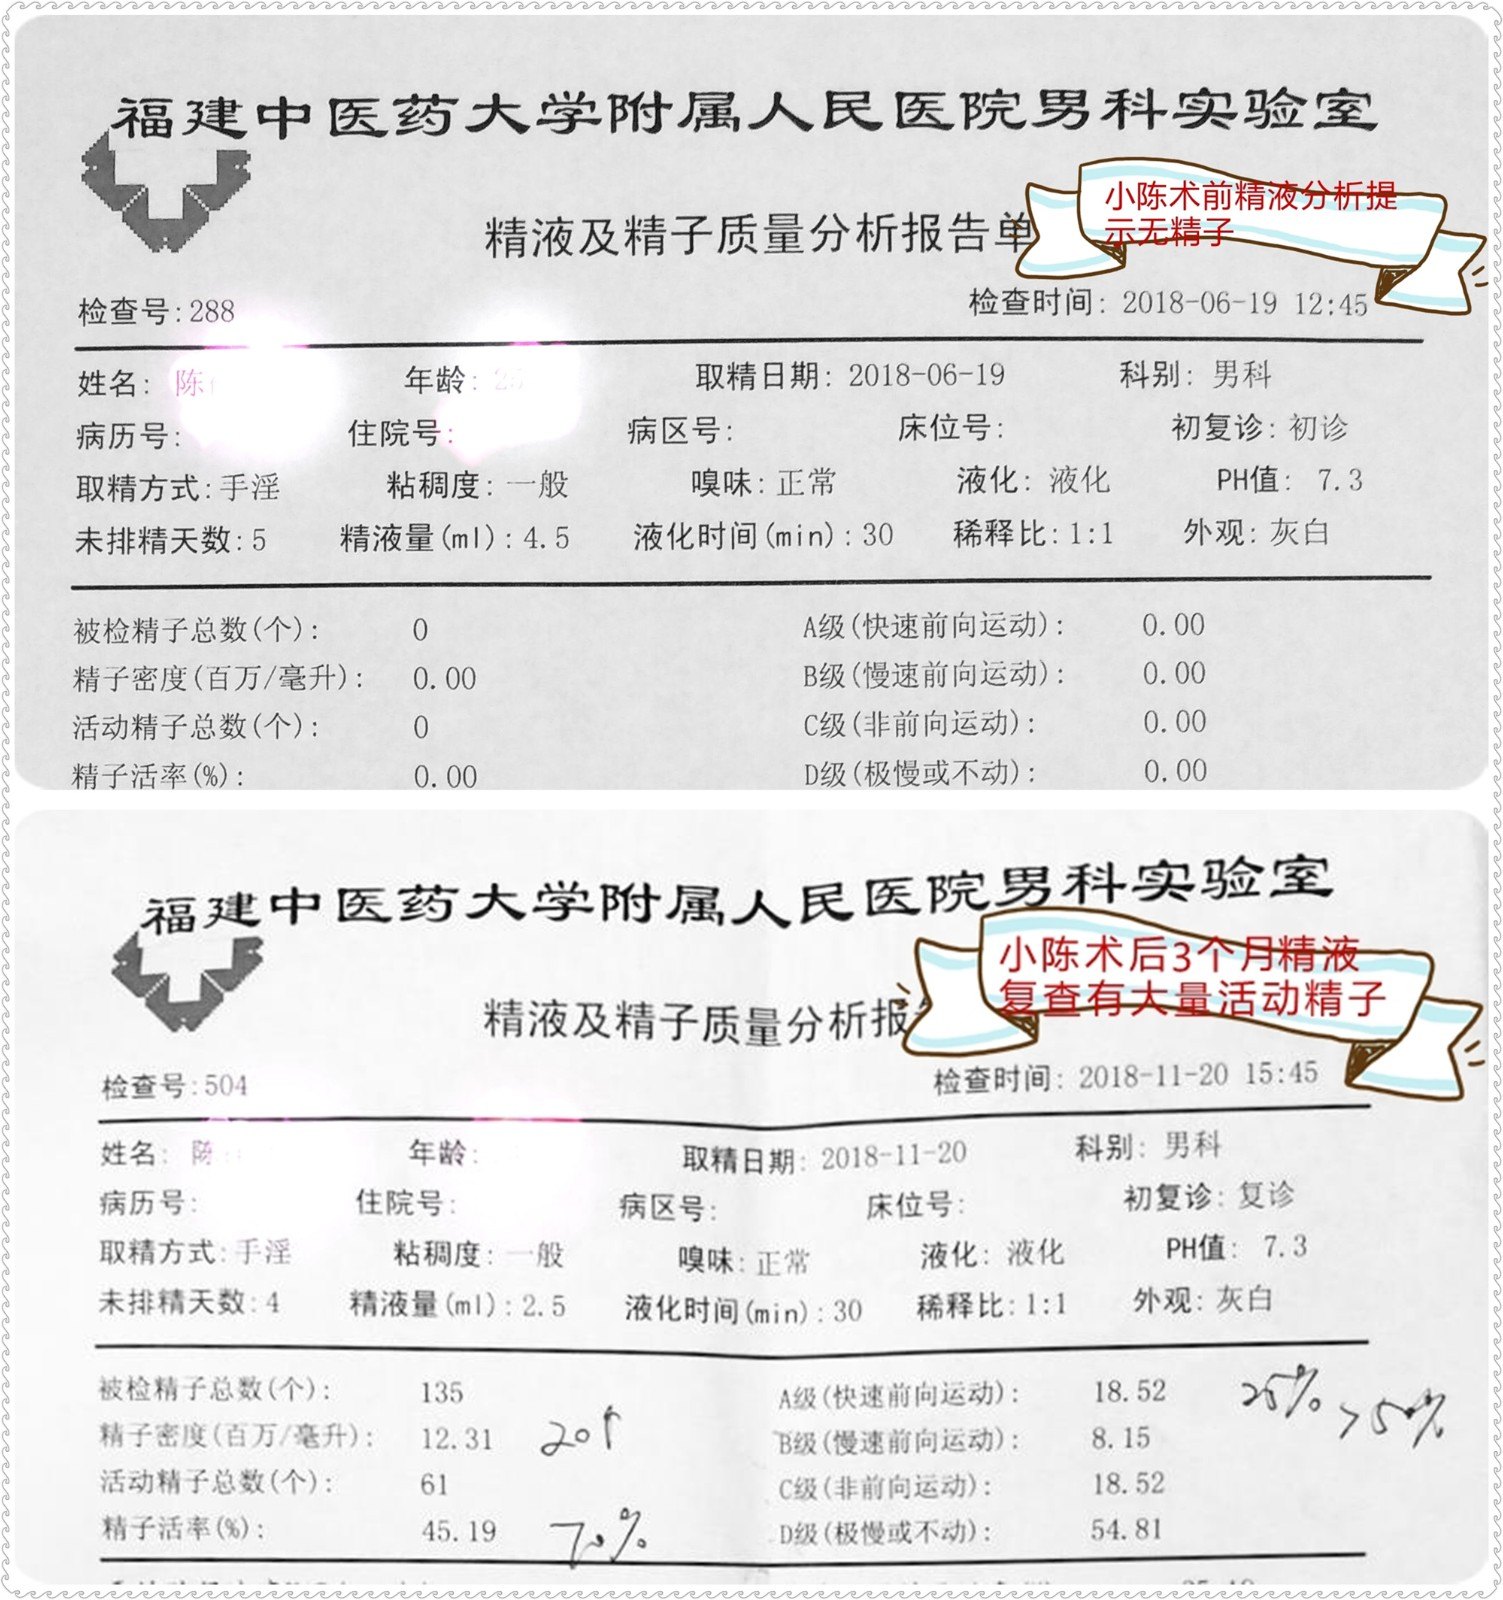 福建中医药大学附属人民医院男科实验室
小陈术前精液分析提
示无精子
精液及精子质量分析报告单
检查号:288 检查时间: 2018-06-19 12:45
姓名: 陈 年龄: 取精日期: 2018-06-19 科别: 男科
病历号: 住院号: 病区号: 床位号: 初复诊: 初诊
取精方式:手淫 粘稠度:一般 嗅味:正常 液化: 液化 PH值: 7.3
未排精天数:5 精液量(ml):4.5 液化时间(min):30 稀释比:1:1 外观:灰白
被检精子总数(个): 0 A级(快速前向运动): 0.00
精子密度(百万/毫升): 0.00 B级(慢速前向运动): 0.00
活动精子总数(个): 0 C级(非前向运动): 0.00
精子活率(%): 0.00 D级(极慢或不动): 0.00
福建中医药大学附属人民医院男科实验室
小陈术后3个月精液
复查有大量活动精子
精液及精子质量分析报
检查号:504 检查时间: 2018-11-20 15:45
姓名: 陈 年龄: 取精日期: 2018-11-20 科别: 男科
病历号: 住院号: 病区号: 床位号: 初复诊: 复诊
取精方式:手淫 粘稠度:一般 嗅味:正常 液化: 液化 PH值: 7.3
未排精天数:4 精液量(ml):2.5 液化时间(min):30 稀释比:1:1 外观:灰白
被检精子总数(个): 135 A级(快速前向运动): 18.52 25% >50%
精子密度(百万/毫升): 12.31 20↑ B级(慢速前向运动): 8.15
活动精子总数(个): 61 C级(非前向运动): 18.52
精子活率(%): 45.19 70% D级(极慢或不动): 54.81